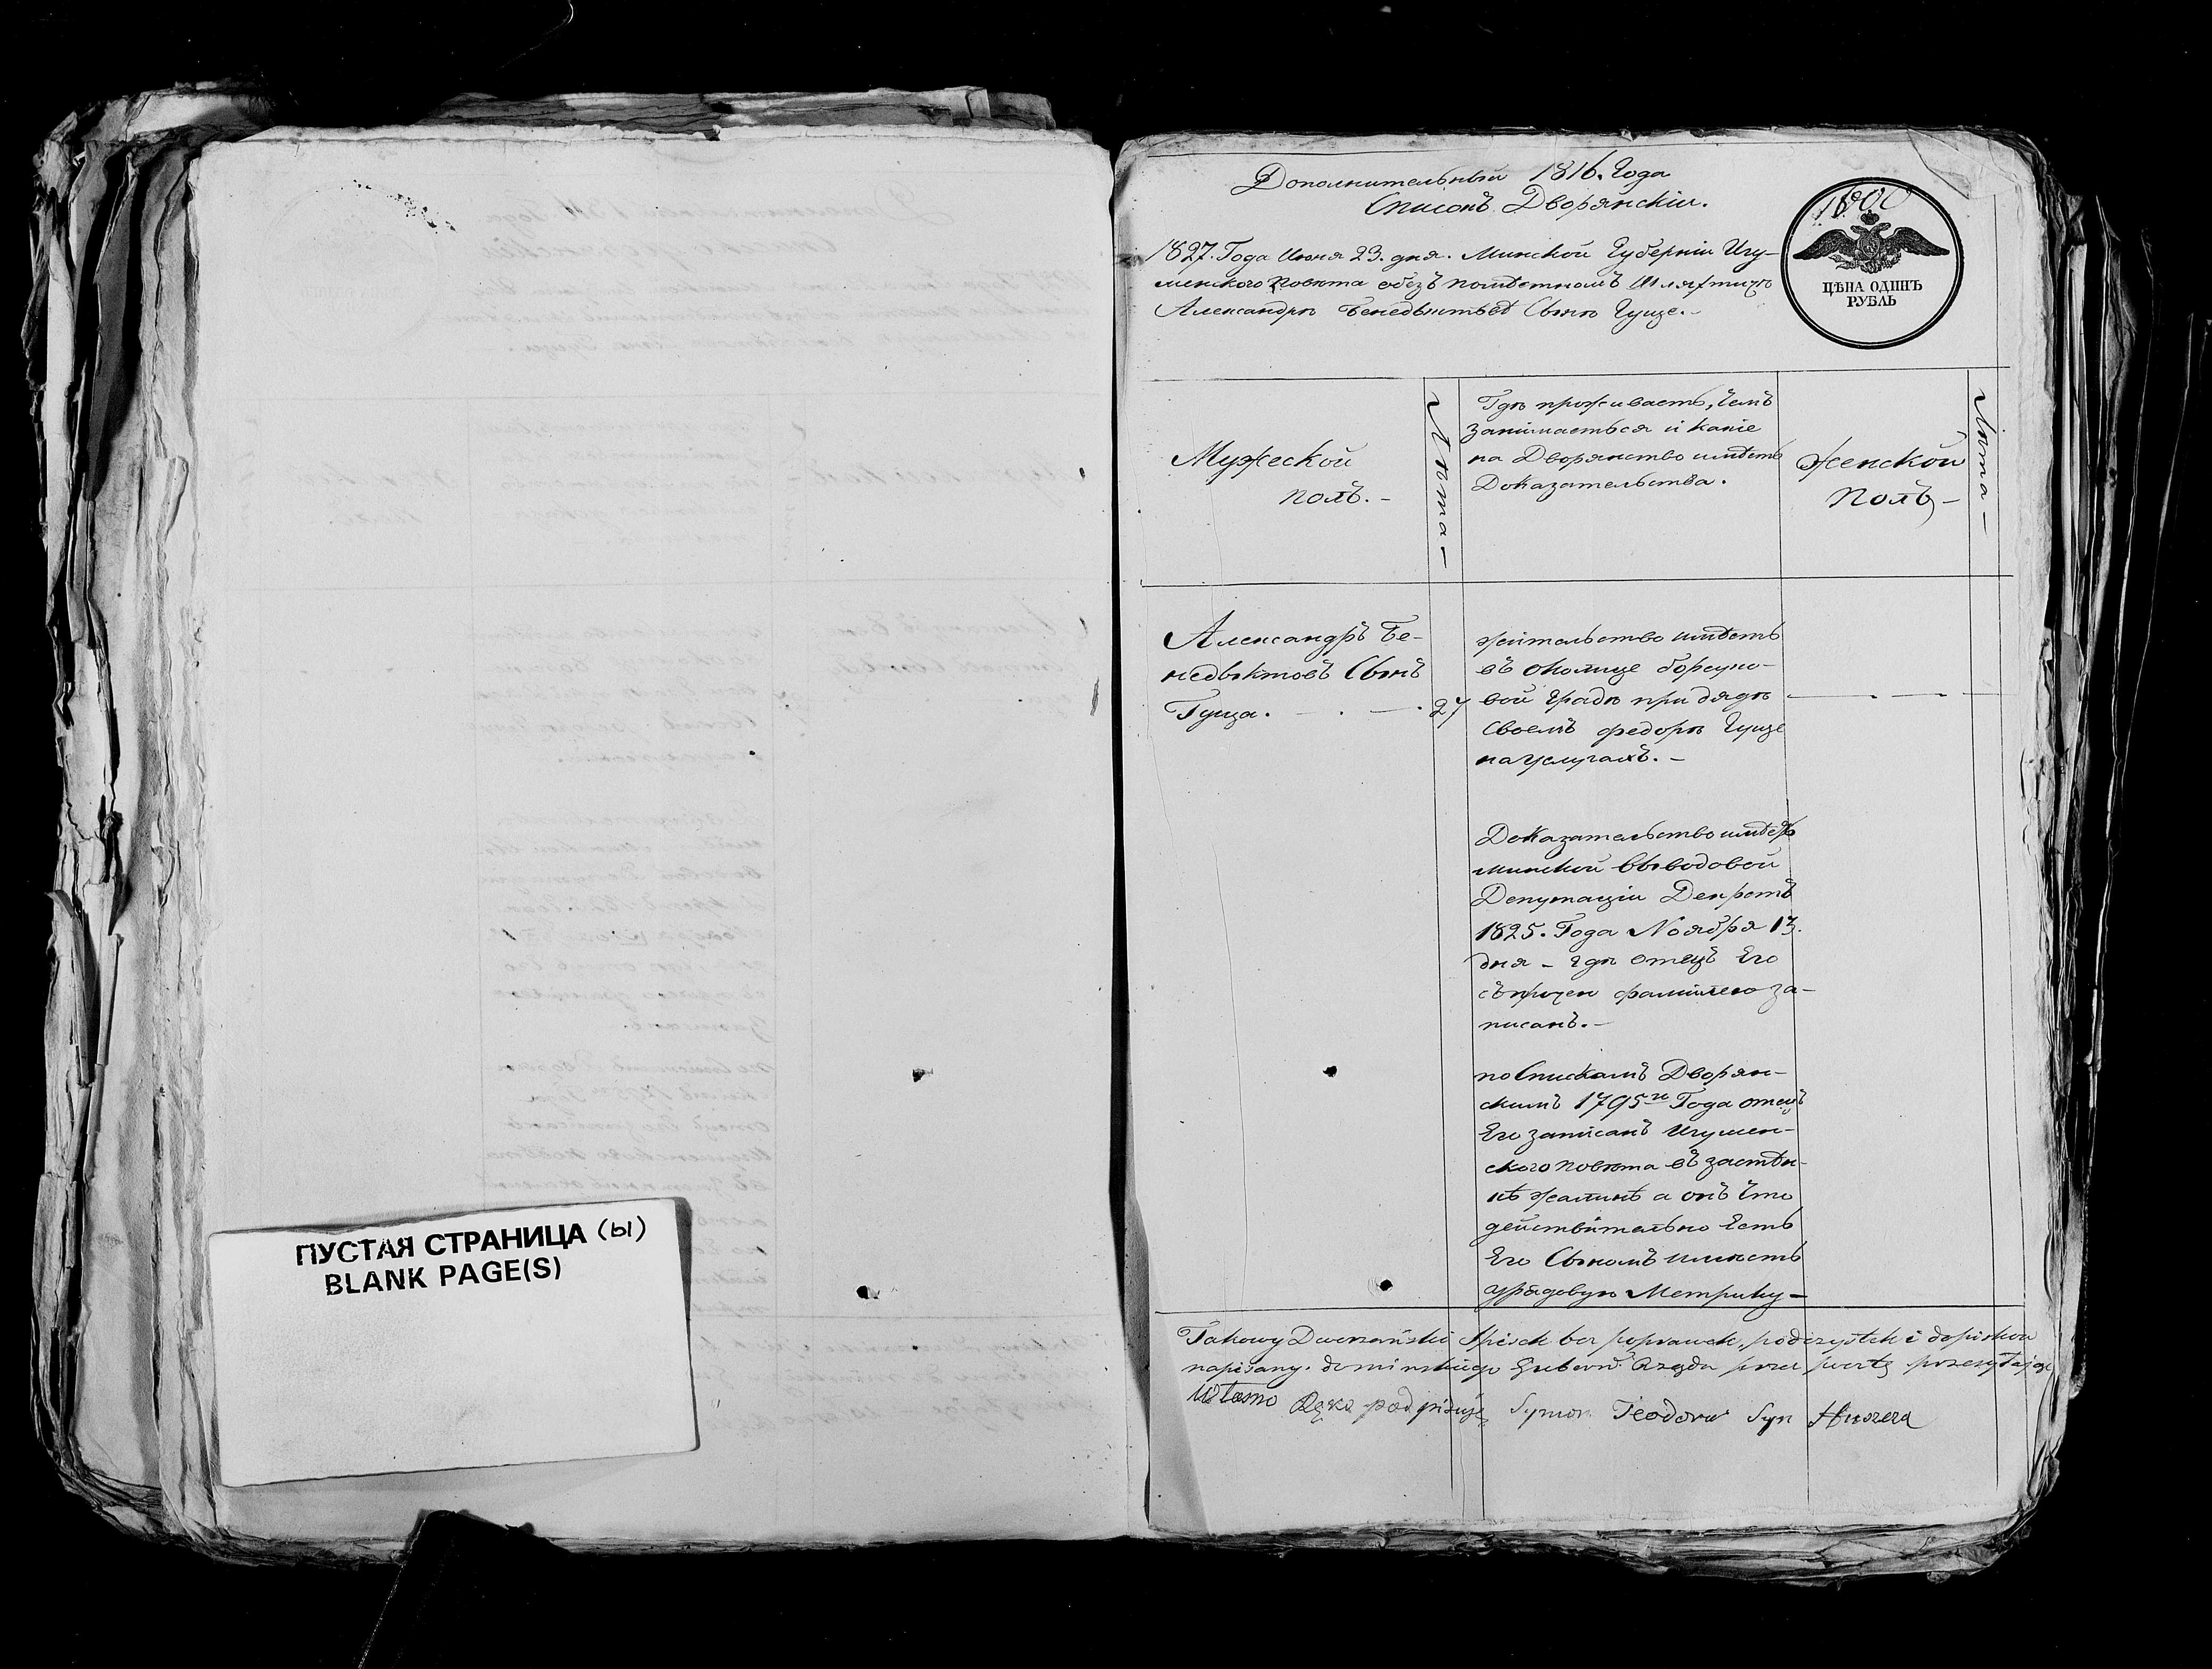 ПУСТАЯ СТРАНИЦА (Ы)
BLANK PAGE(S)
Дополнительный 1816. Года
Списокъ Дворянскіи.
1827. Года Июня 23. дня. Минской Губерніи Игу-
менского Повѣта обезъ помѣстномъ Шляхтичѣ
Александрѣ Бенедыктовѣ Сынѣ Гуще.-
ЦѢНА ОДИНЪ
РУБЛЬ
Мужеской
полъ.-
Лѣта-
Гдѣ проживаетъ, Чемъ
Занимаеться и какіе
на Дворянство имѣетъ
Доказательства.
Женской
Полъ-
Лѣта-
Александръ Бе-
недыктовъ Сынъ
Гуща.
27
жительство имѣетъ
въ околице борсуко-
вой Градѣ при дядѣ
Своемъ федорѣ Гуще
на услугахъ.-
Доказательство имѣетъ
минской Выводовой
Депутаціи Декретъ
1825. Года Ноября 13.
дня - гдѣ отецъ Его
съ прочею фамиліею за-
писанъ.-
по Спискамъ Дворян-
скимъ 1795го Года отецъ
Его записанъ Игумен-
ского повѣта въ застѣн-
кѣ а онъ Что
действительно Есть
Его Сыномъ имѣетъ
урядовую Метрику-
Takowy Dworzański Spisok bez poprawek, podczystek i dopiskow
napisany. do minskiego Gubern. Rządu przez pocztę przesyłając
Własno Ręką podpisuję Symon Teodorow Syn Huszcza